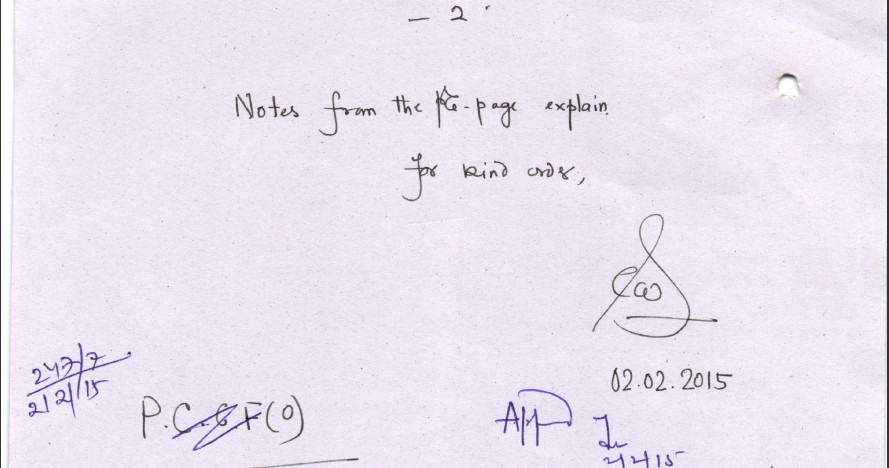 - 2
Notes from the pre-page explain.
for kind order,
02.02.2015
247/7
2/2/15
P.C.C.F(O)
App
2/2/15